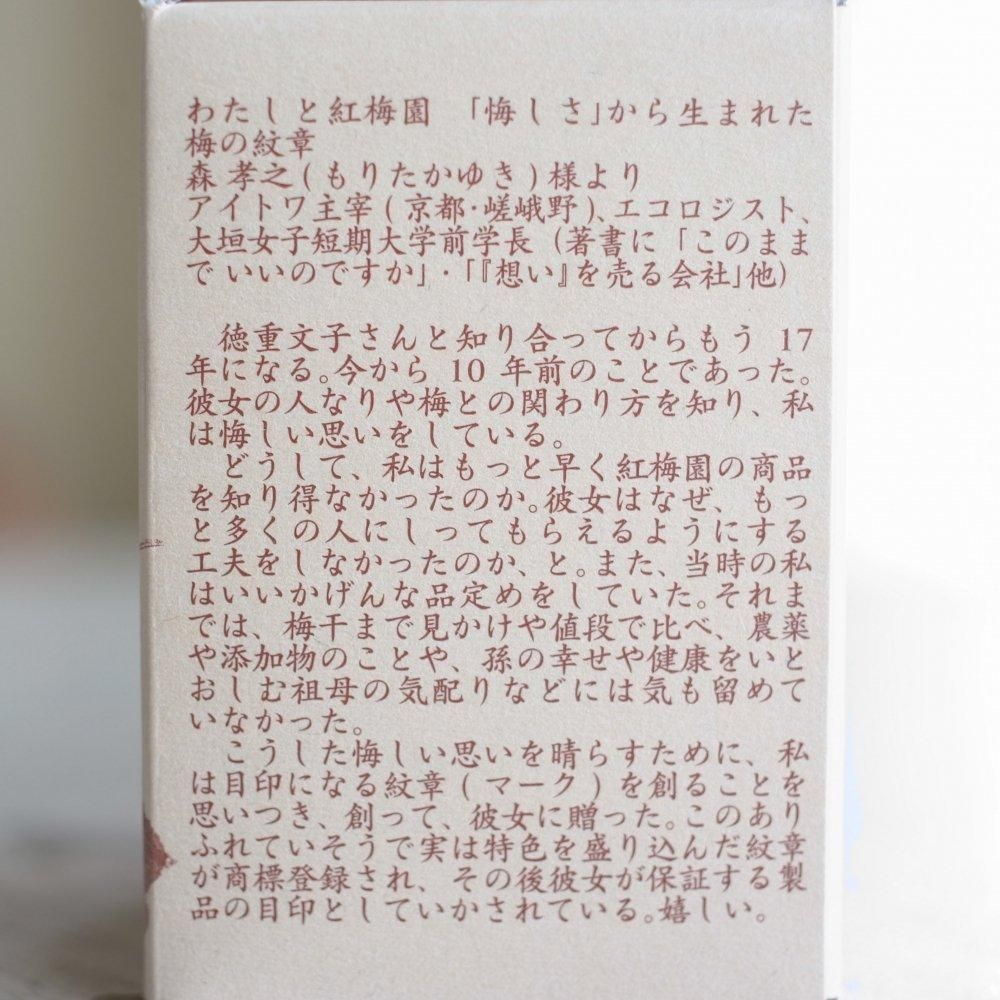 わたしと紅梅園　「悔しさ」から生まれた
梅の紋章
森 孝之(もりたかゆき)様より
アイトワ主宰(京都・嵯峨野)、エコロジスト、
大垣女子短期大学前学長（著書に「このまま
でいいのですか」・「『想い』を売る会社」他）
　徳重文子さんと知り合ってからもう 17
年になる。今から 10 年前のことであった。
彼女の人なりや梅との関わり方を知り、私
は悔しい思いをしている。
　どうして、私はもっと早く紅梅園の商品
を知り得なかったのか。彼女はなぜ、もっ
と多くの人にしってもらえるようにする
工夫をしなかったのか、と。また、当時の私
はいいかげんな品定めをしていた。それま
では、梅干まで見かけや値段で比べ、農薬
や添加物のことや、孫の幸せや健康をいと
おしむ祖母の気配りなどには気も留めて
いなかった。
　こうした悔しい思いを晴らすために、私
は目印になる紋章(マーク)を創ることを
思いつき、創って、彼女に贈った。このあり
ふれていそうで実は特色を盛り込んだ紋章
が商標登録され、その後彼女が保証する製
品の目印としていかされている。嬉しい。